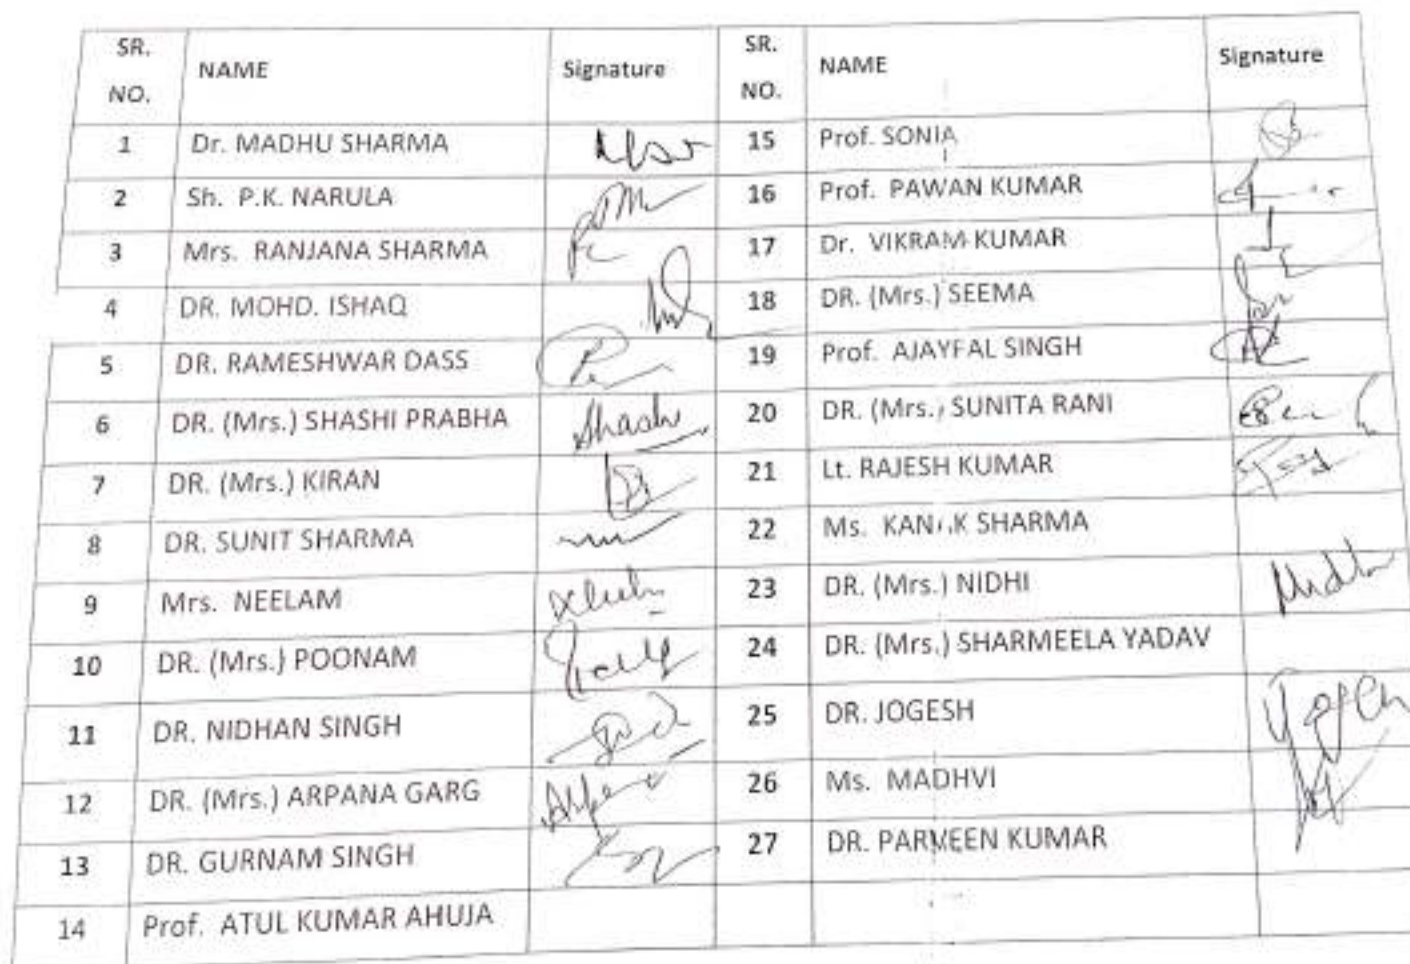 SR. NO. NAME Signature SR. NO. NAME Signature
1 Dr. MADHU SHARMA 15 Prof. SONIA
2 Sh. P.K. NARULA 16 Prof. PAWAN KUMAR
3 Mrs. RANJANA SHARMA 17 Dr. VIKRAM KUMAR
4 DR. MOHD. ISHAQ 18 DR. (Mrs.) SEEMA
5 DR. RAMESHWAR DASS 19 Prof. AJAYPAL SINGH
6 DR. (Mrs.) SHASHI PRABHA Shashi 20 DR. (Mrs.) SUNITA RANI
7 DR. (Mrs.) KIRAN 21 Lt. RAJESH KUMAR
8 DR. SUNIT SHARMA 22 Ms. SHARMA
9 Mrs. NEELAM 23 DR. (Mrs.) NIDHI Nidhi
10 DR. (Mrs.) POONAM 24 DR. (Mrs.) SHARMEELA YADAV
11 DR. NIDHAN SINGH 25 DR. JOGESH
12 DR. (Mrs.) ARPANA GARG 26 Ms. MADHVI
13 DR. GURNAM SINGH 27 DR. PARVEEN KUMAR
14 Prof. ATUL KUMAR AHUJA